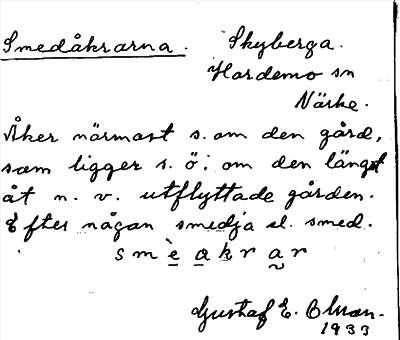 Smedåkrarna. Skyberga.
Hardemo sn
Närke.
Åker närmast s. om den gård,
som ligger s. ö. om den längst
åt n. v. utflyttade gården.
Efter någon smedja el. smed.
s m è a k r a r
Gustaf E.
1933